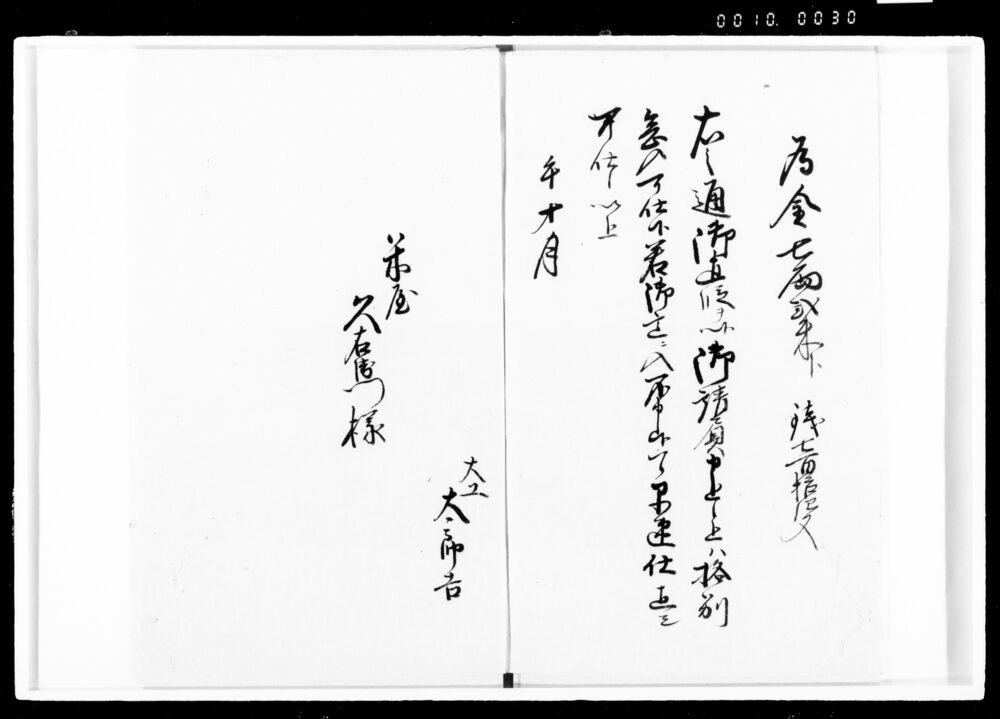 0010. 0030
為金七両弐朱ト 銭七百拾弐文
右之通御直段ニ御請負申上候上ハ格別
念入可仕候若御意ニ入不申候ハヽ早速仕直シ
可仕候以上
午十月
大工
太郎吉
米屋
久右衛門様